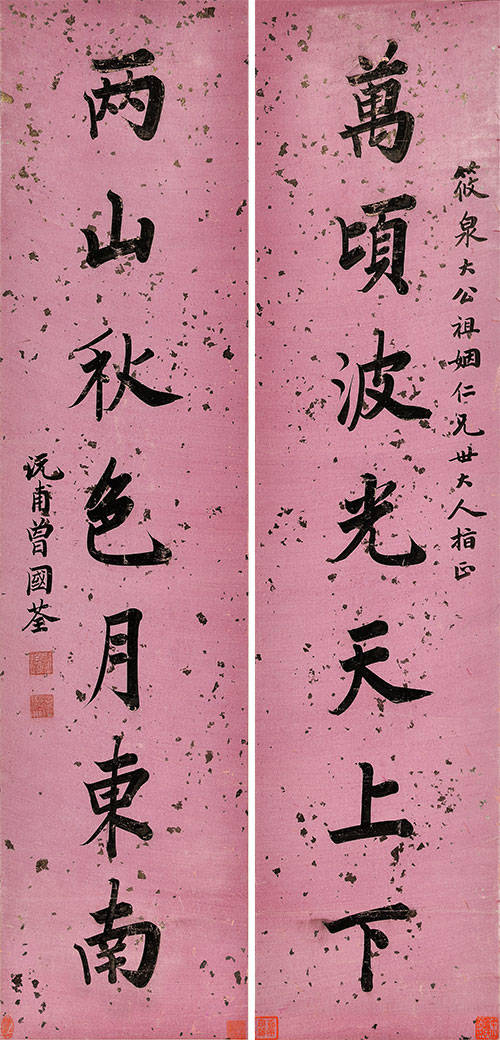 筱泉大公祖姻仁兄世大人指正
萬頃波光天上下
两山秋色月東南
沅甫曾國荃